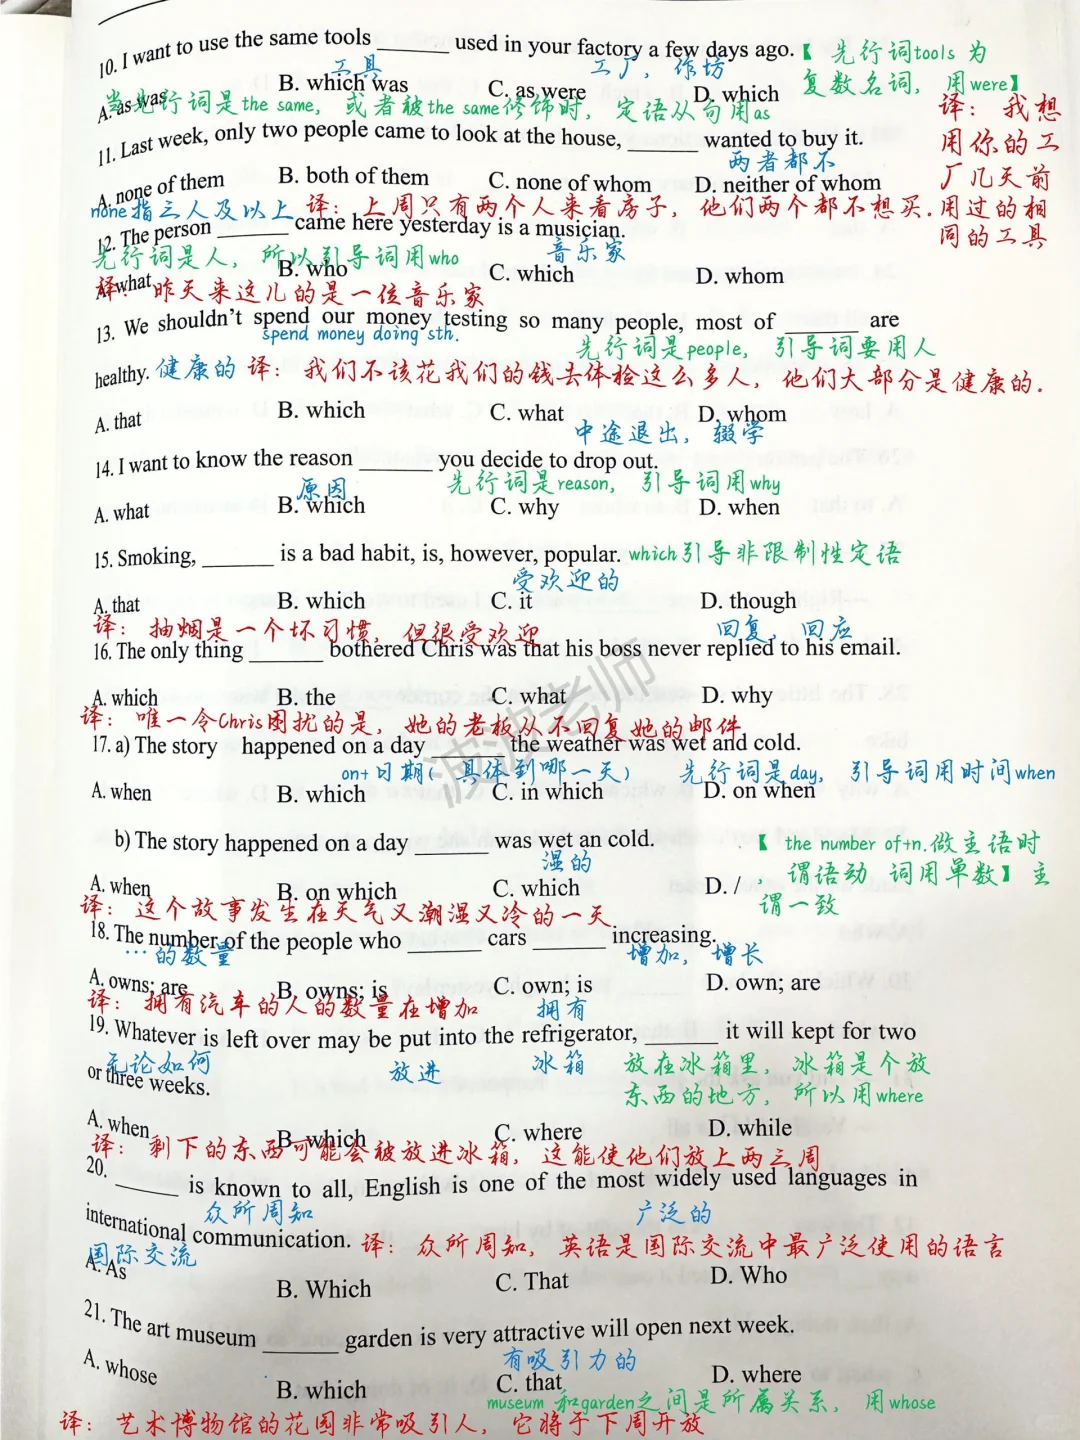 10. I want to use the same tools ______ used in your factory a few days ago.【先行词tools 为
工具 工厂，作坊 复数名词，用were】
A. as was B. which was C. as were D. which
当先行词是the same，或者被the same修饰时，定语从句用as
译：我想
用你的工
厂几天前
用过的相
同的工具
11. Last week, only two people came to look at the house, ______ wanted to buy it.
两者都不
A. none of them B. both of them C. none of whom D. neither of whom
none指三人及以上 译：上周只有两个人来看房子，他们两个都不想买.
12. The person ______ came here yesterday is a musician.
先行词是人，所以引导词用who 音乐家
A. what B. who C. which D. whom
译：昨天来这儿的是一位音乐家
13. We shouldn't spend our money testing so many people, most of ______ are
spend money doing sth. 先行词是people，引导词要用人
healthy. 健康的 译：我们不该花我们的钱去体检这么多人，他们大部分是健康的.
A. that B. which C. what D. whom
中途退出，辍学
14. I want to know the reason ______ you decide to drop out.
原因 先行词是reason，引导词用why
A. what B. which C. why D. when
15. Smoking, ______ is a bad habit, is, however, popular. which引导非限制性定语
受欢迎的
A. that B. which C. it D. though
译：抽烟是一个坏习惯，但很受欢迎 回复，回应
16. The only thing ______ bothered Chris was that his boss never replied to his email.
A. which B. the C. what D. why
译：唯一令Chris困扰的是，她的老板从不回复她的邮件
17. a) The story happened on a day ______ the weather was wet and cold.
on+日期(具体到哪一天) 先行词是day，引导词用时间when
A. when B. which C. in which D. on when
b) The story happened on a day ______ was wet an cold.
湿的
【the number of+n.做主语时
，谓语动 词用单数】主
谓一致
A. when B. on which C. which D. /
译：这个故事发生在天气又潮湿又冷的一天
18. The number of the people who ______ cars ______ increasing.
…的数量 增加，增长
A. owns; are B. owns; is C. own; is D. own; are
译：拥有汽车的人的数量在增加 拥有
19. Whatever is left over may be put into the refrigerator, ______ it will kept for two
无论如何 放进 冰箱 放在冰箱里，冰箱是个放
or three weeks. 东西的地方，所以用where
A. when B. which C. where D. while
译：剩下的东西可能会被放进冰箱，这能使他们放上两三周
20. ______ is known to all, English is one of the most widely used languages in
众所周知 广泛的
international communication. 译：众所周知，英语是国际交流中最广泛使用的语言
国际交流
A. As B. Which C. That D. Who
21. The art museum ______ garden is very attractive will open next week.
有吸引力的
A. whose B. which C. that D. where
museum 和garden之间是所属关系，用whose
译：艺术博物馆的花园非常吸引人，它将于下周开放
波波老师